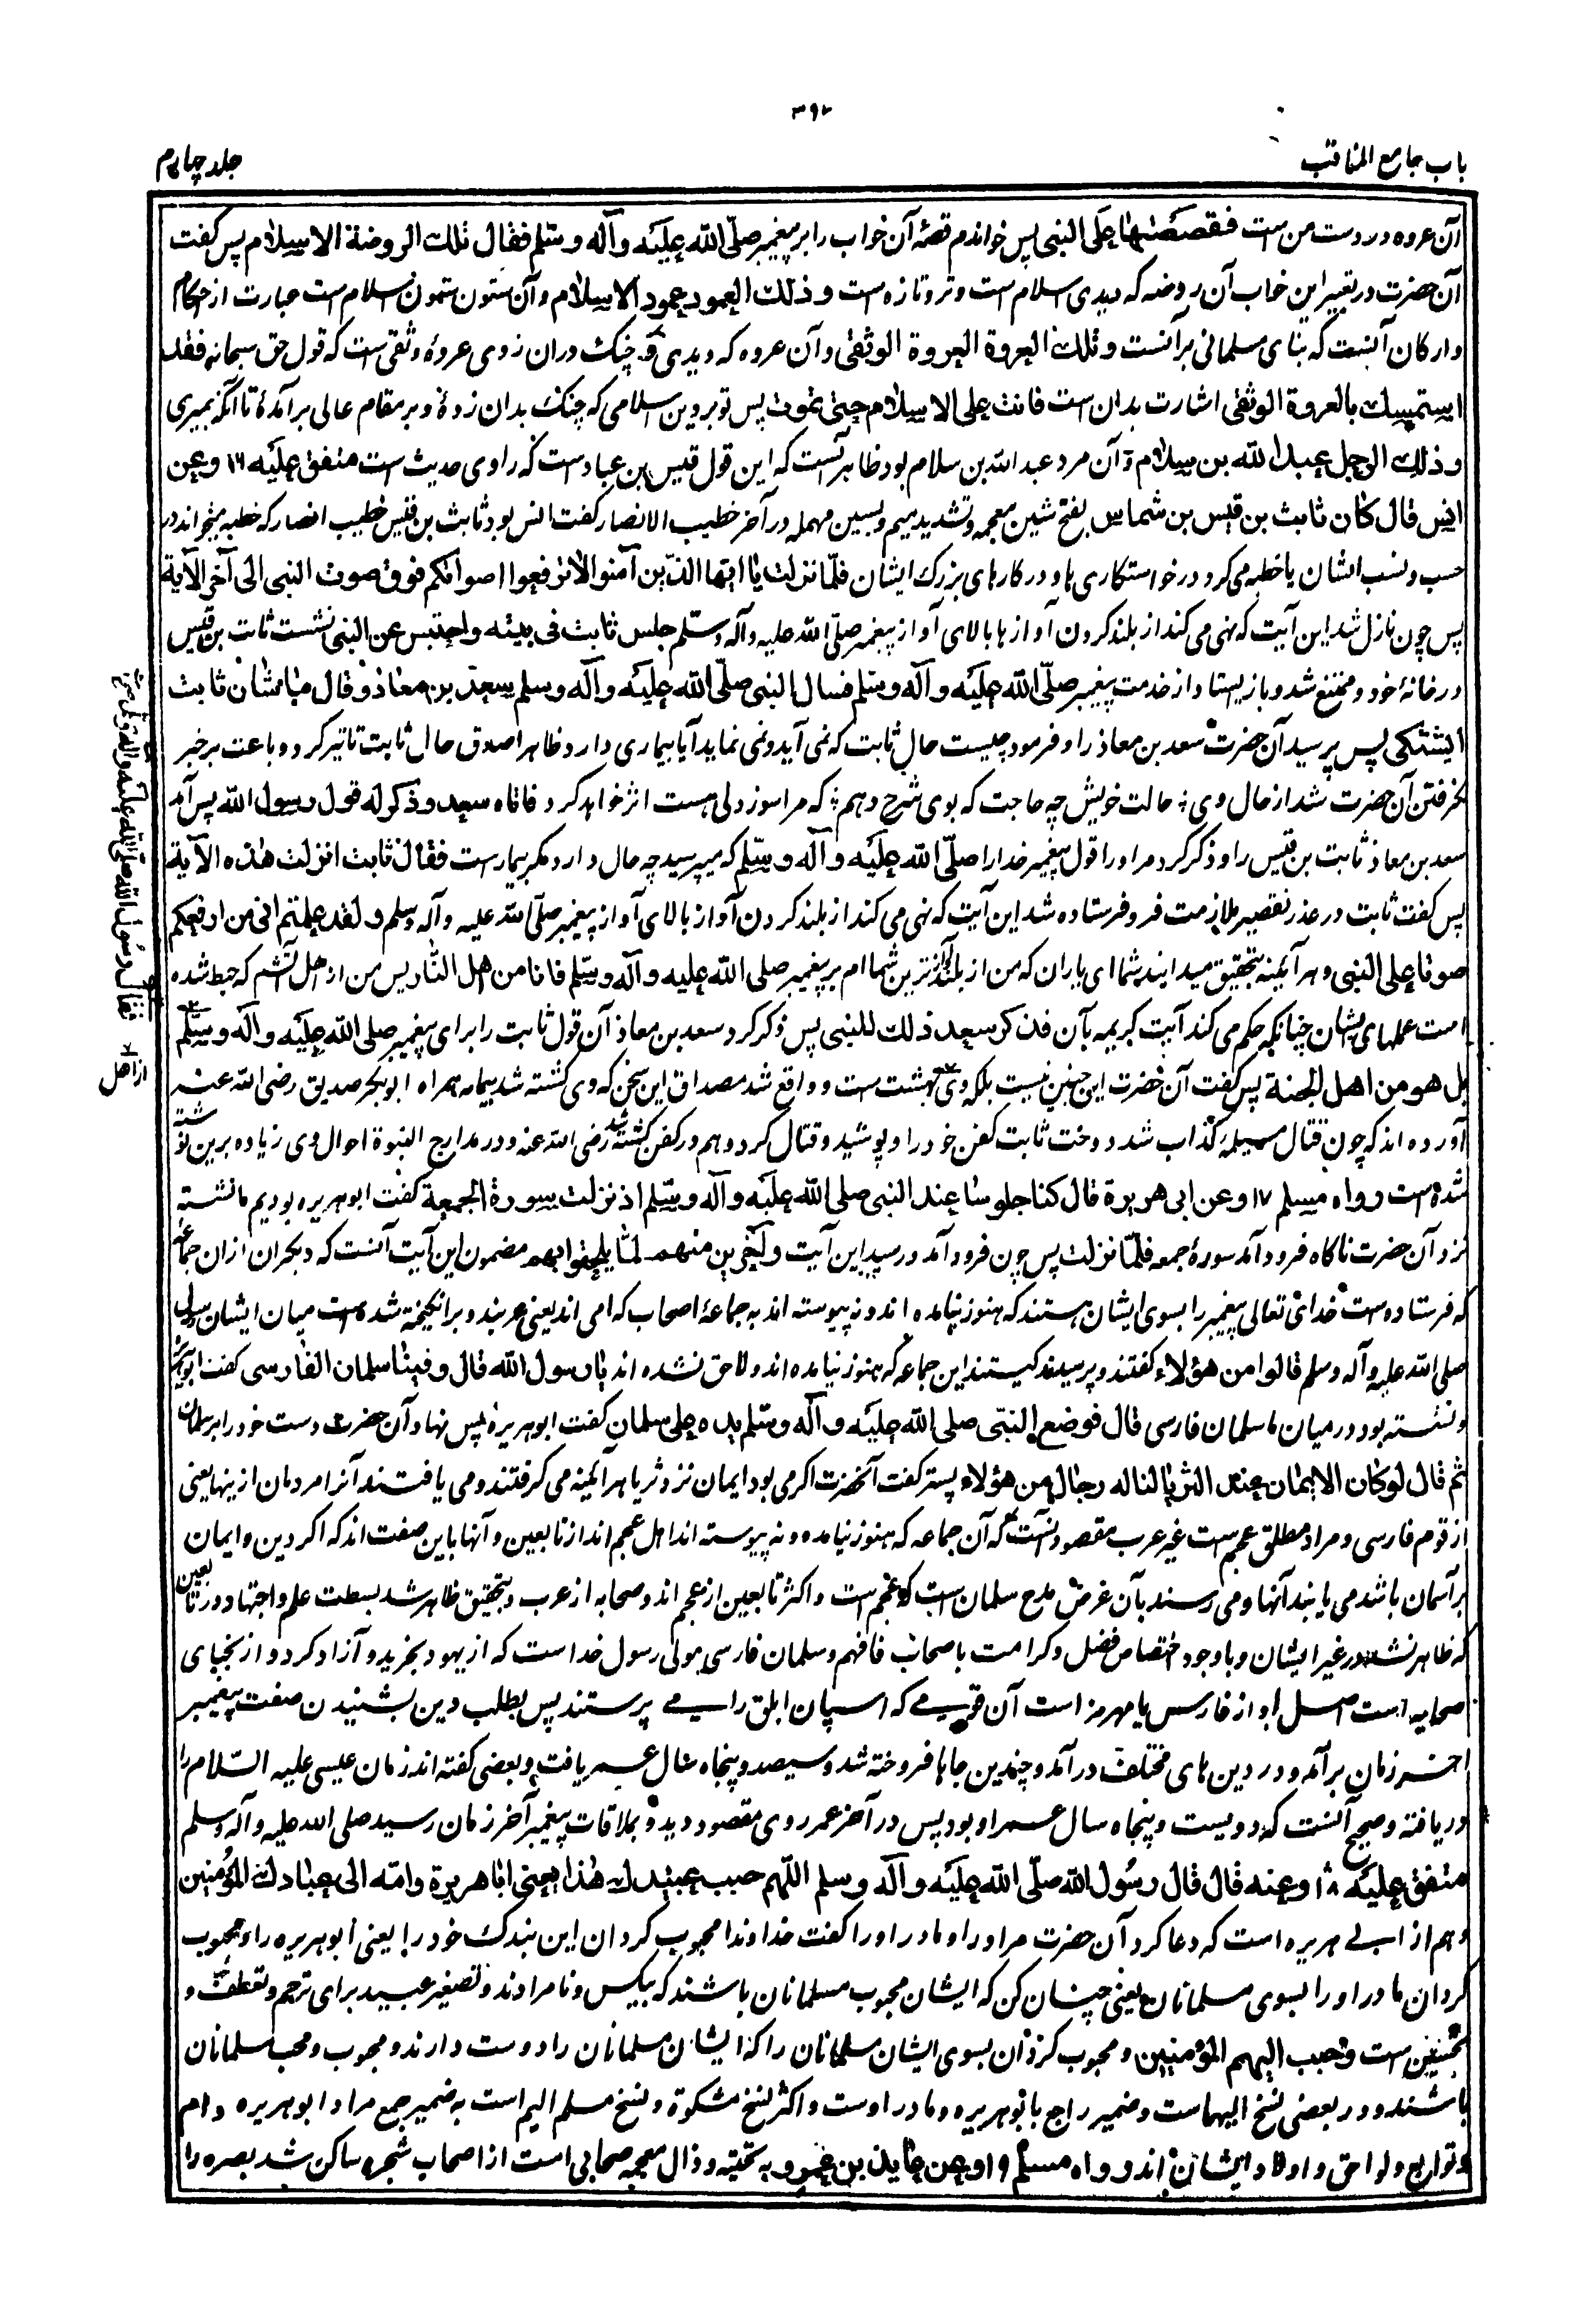 ۳۹۲
باب جامع المناقب
جلد چهارم
آن عروه در دست من است فقصصتها على النبى پس خواندم قصهٔ آن خواب را بر پیغمبر صلّى الله عليه وآله وسلم فقال تلك الروضة الاسلام پس گفت
آن حضرت در تعبیر این خواب آن روضه که دیدی اسلام است و تر و تازه است وذلك العمود عمود الاسلام وآن ستون ستون اسلام است عبارت از احکام
و ارکان آنست که بنای مسلمانی بر آنست وتلك العروة العروة الوثقى وآن عروه که دیدی و چنگ در ان زدی عروهٔ وثقی است که قول حق سبحانه فقد
استمسك بالعروة الوثقى اشارت بدان است فانت على الاسلام حتى تموت پس تو بر دین اسلامی که چنگ بدان زدهٔ و بر مقام عالی برآمدهٔ تا آنکه بمیری
وذلك الرجل عبد الله بن سلام و آن مرد عبد الله بن سلام بود ظاهر آنست که این قول قیس بن عباد ست که راوی حدیث است متفق عليه ۱۶ وعن
انس قال كان ثابت بن قيس بن شماس بفتح شین معجمه و تشدید میم و بسین مهمله در آخر خطيب الانصار گفت انس بود ثابت بن قیس خطیب انصار که خطبه میخواند در
حسب و نسب ایشان یا خطبه می کرد در خواستکاری ها و در کارهای بزرگ ایشان فلما نزلت يا ايها الذين آمنوا لا ترفعوا اصواتكم فوق صوت النبى الى آخر الآية
پس چون نازل شد این آیت که نهی می کند از بلند کردن آوازها بالای آواز پیغمبر صلى الله عليه وآله وسلم جلس ثابت فى بيته واحتبس عن النبى نشست ثابت بن قیس
در خانهٔ خود و ممتنع شد و باز ایستاد از خدمت پیغمبر صلى الله عليه وآله وسلم فسال النبى صلى الله عليه وآله وسلم سعد بن معاذ فقال ما شان ثابت
ايشتكى پس پرسید آن حضرت سعد بن معاذ را و فرمود چیست حال ثابت که نمی آید و نمی نماید آیا بیماری دارد ظاهرا صدق حال ثابت تاثیر کرد و باعث بر خبر
گرفتن آن حضرت شد از حال وی ؛ حالت خویش چه حاجت که بوی شرح دهم ؛ که مرا سوز دلی هست اثر خواهد کرد فاتاه سعد وذكر له قول رسول الله پس آمد
سعد بن معاذ ثابت بن قیس را و ذکر کرد مر او را قول پیغمبر خدا را صلى الله عليه وآله وسلم که میپرسید چه حال دارد مگر بیمارست فقال ثابت انزلت هذه الآية
پس گفت ثابت در عذر تقصیر ملازمت فرو فرستاده شد این آیت که نهی می کند از بلند کردن آواز بالای آواز پیغمبر صلى الله عليه وآله وسلم ولقد علمتم انى من ارفعكم
صوتا على النبى و هر آئینه بتحقیق میدانید شما ای یاران که من از بلند آواز ترین شما ام بر پیغمبر صلى الله عليه وآله وسلم فانا من اهل النار پس من از اهل آتشم که حبط شده
است عملهای ایشان چنانکه حکم می کند آیت کریمه بآن فذكر سعد ذلك للنبى پس ذکر کرد سعد بن معاذ آن قول ثابت را برای پیغمبر صلى الله عليه وآله وسلم
بل هو من اهل الجنة پس گفت آن حضرت این چنین نیست بلکه وی بهشت ست و واقع شد مصداق این سخن که وی کشته شد بیمامه همراه ابوبکر صدیق رضی الله عنه
آورده اند که چون قتال مسیلمه کذاب شد دوخت ثابت کفن خود را و پوشید و قتال کرد و هم در کفن کشته شد رضی الله عنه و در مدارج النبوة احوال وی زیاده برین نوشته
شده است رواه مسلم ۱۷ وعن ابى هريرة قال كنا جلوسا عند النبى صلى الله عليه وآله وسلم اذ نزلت سورة الجمعة گفت ابوهریره بودیم ما نشسته
نزد آن حضرت ناگاه فرود آمد سورهٔ جمعه فلما نزلت پس چون فرود آمد و رسید این آیت وآخرين منهم لما يلحقوا بهم مضمون این آیت آنست که دیگران از ان جماعه
که فرستاده ست خدای تعالی پیغمبر را بسوی ایشان هستند که هنوز نیامده اند و نه پیوسته اند به جماعهٔ اصحاب که امی اند یعنی عربند و برانگیخته شده ست میان ایشان رسولی
صلى الله عليه وآله وسلم قالوا من هؤلاء گفتند و پرسیدند کیستند این جماعه که هنوز نیامده اند و لاحق نشده اند يا رسول الله قال وفينا سلمان الفارسى گفت ابوهریره
و نشسته بود در میان ما سلمان فارسی قال فوضع النبى صلى الله عليه وآله وسلم يده على سلمان گفت ابوهریره پس نهاد آن حضرت دست خود را بر سلمان
ثم قال لو كان الايمان عند الثريا لناله رجال من هؤلاء پستر گفت آنحضرت اگر می بود ایمان نزد ثریا هر آئینه می گرفتند و می یافتند آنرا مردمان از ینها یعنی
از قوم فارسی و مراد مطلق عجم ست غیر عرب مقصود آنست که آن جماعه که هنوز نیامده و نه پیوسته اند اهل عجم اند از تابعین و آنها باین صفت اند که اگر دین و ایمان
بر آسمان باشد می یابند آنها و می رسند بآن غرض مدح سلمان است که عجم است و اکثر تابعین از عجم اند و صحابه از عرب و بتحقیق ظاهر شد بسطت علم و اجتهاد در تابعین
که ظاهر نشد در غیر ایشان و با وجود اختصاص فضل و کرامت باصحاب فافهم و سلمان فارسی مولی رسول خدا ست که از یهود بخرید و آزاد کرد و از نجبای
صحابه است اصل او از فارس یا مهرمز است آن قومے که اسپان ابلق را مے پرستند پس بطلب دین بشنیدن صفت پیغمبر
آخر زمان برآمد و در دین های مختلف درآمد و چندین جاها فروخته شد و سیصد و پنجاه سال عمر یافت و بعضی گفته اند زمان عیسی علیه السلام را
دریافته و صحیح آنست که دویست و پنجاه سال عمر او بود پس در آخر عمر روی مقصود دید و بملاقات پیغمبر آخر زمان رسید صلى الله عليه وآله وسلم
متفق عليه ۱۸ وعنه قال قال رسول الله صلى الله عليه وآله وسلم اللهم حبب عبيدك هذا يعنى ابا هريرة وامه الى عبادك المؤمنين
و هم از ابی هریره است که دعا کرد آن حضرت مر او را و مادر او را گفت خداوندا محبوب گردان این بندک خود را یعنی ابوهریره را و محبوب
گردان مادر او را بسوی مسلمانان یعنی چنان کن که ایشان محبوب مسلمانان باشند که بیکس و نامرادند و تصغیر عبید برای ترحم و تعطف و
تحنین ست وحبب اليهم المؤمنين و محبوب گردان بسوی ایشان مسلمانان را که ایشان مسلمانان را دوست دارند و محبوب و محب مسلمانان
باشند و در بعضی نسخ الیهما ست و ضمیر راجع بابوهریره و مادر اوست و اکثر نسخ مشکوة و نسخ مسلم الیهم است به ضمیر جمع مراد ابوهریره و ام
و توابع و لواحق و اولاد ایشان اند رواه مسلم ۱۹ وعن عايذ بن عمرو به تحتیه و ذال معجمه صحابی است از اصحاب شجره ساکن شد بصره را
فقال رسول الله صلى الله عليه وآله وسلم
از اهل